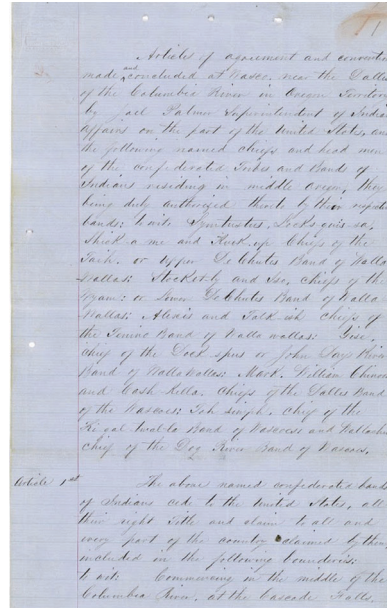 Articles of agreement and convention
made and concluded at Wasco, near the Dalles
of the Columbia River in Oregon Territory
by Joel Palmer Superintendent of Indian
Affairs on the part of the United States, and
the following named chiefs and head men
of the confederated Tribes and Bands of
Indians residing in middle Oregon, they
being duly authorized thereto by their respective
bands; to wit: Symtustus, Locks-quis-sa,
Shick a me and Kuck-up Chiefs of the
Taih. or Upper De Chutes Band of Walla
Wallas; Stocket-ly and Iso, chiefs of the
Wyam: or Lower De Chutes Band of Walla
Wallas; Alexis and Talk ish chiefs of
the Tenino Band of Walla wallas: Yise.
chief of the Dock spus or John Days River
Band of Walla Wallas; Mark. William Chinook
and Cash Kella. Chiefs of the Dalles Band
of the Wascoes; Toh simph. chief of the
Ki-gal-twal-la Band of Wascoes and Wallachin
chief of the Dog River Band of Wascoes.
Article 1st The above named confederated bands
of Indians cede to the United States, all
their right Title and claim to all and
every part of the country claimed by them
included in the following boundaries:
to wit: Commencing in the middle of the
Columbia River, at the Cascade Falls.